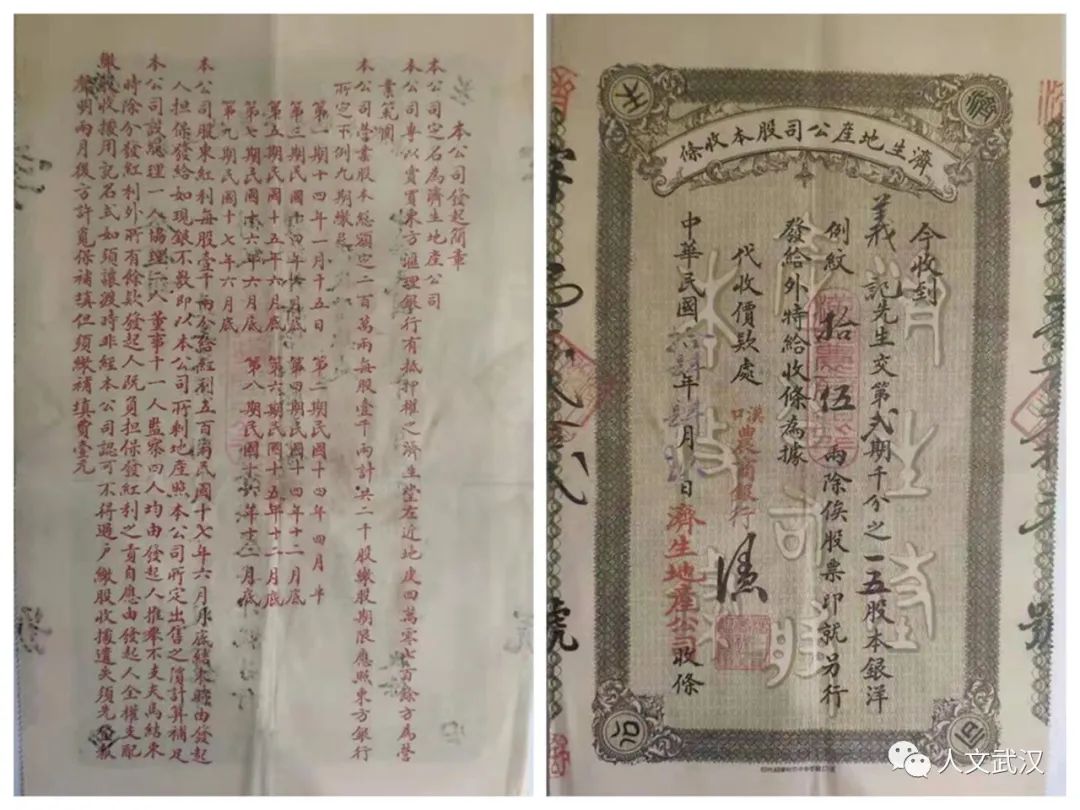 本公司發起簡章
本公司定名為濟生地產公司
本公司專以賣買東方滙理銀行有抵押權之濟生堂左近地皮四萬零七百餘方為營
業範圍
本公司營業股本總額定二百萬兩每股壹千兩計共二千股繳股期限應照東方銀行
所定下例九期繳
第一期民國十四年一月十五日 第二期民國十四年四月半
第三期民國十四年六月底 第四期民國十四年十二月底
第五期民國十五年六月底 第六期民國十五年十二月底
第七期民國十六年六月底 第八期民國十六年十二月底
第九期民國十七年六月底
本公司股東紅利每股壹千兩分給紅利五百兩民國十七年六月底結束時由發起
人担保發給如現銀不敷即以本公司所剩地產照本公司所定出售之價計算補足
本公司設總理一人協理二人董事十一人監察四人均由發起人推舉不支夫馬結束
時除分發紅利外所有餘款發起人既負担保發紅利之責自應由發起人全權支配
繳股收據用記名式如須讓渡時非經本公司認可不得過戶繳股收據遺失須先登報
聲明兩月後方許覓保補填但須繳補填費壹元
濟生地產公司股本收條
今收到
義記先生交第弍期千分之一五股本銀洋
例紋拾伍兩除俟股票印就另行
發給外特給收條為據
代收價款處 漢口農商銀行
中華民國拾肆年肆月 日濟生地產公司收條
濟
生
公
司
人文武汉